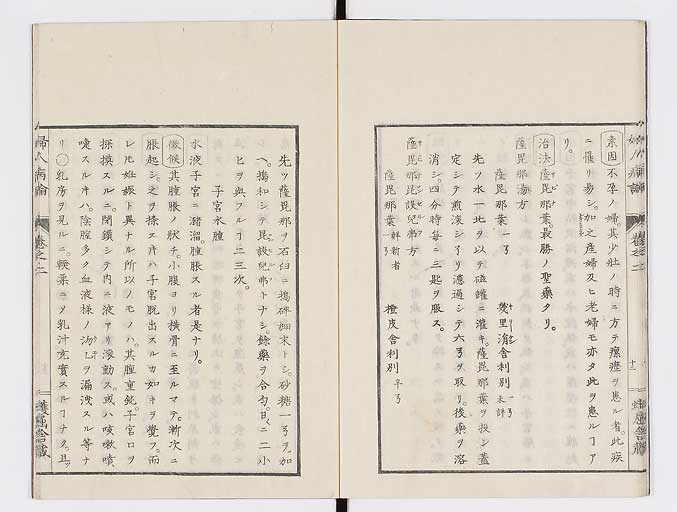 婦人病論
卷之二
素因 不孕ノ婦。其少壯ノ時ニ方テ瘰癧ヲ患ル者。此疾
ニ罹リ易シ。加之產婦及ヒ老婦モ亦タ此ヲ患ルコア
リ。
治法 薩毘那葉。最勝ノ聖藥タリ。
薩毘那湯方
薩毘那葉 一ヲ
舍利別
先ツ水一
ヲ以テ磁罐ニ灌キ。薩毘那葉ヲ投シ蓋
定シテ煎滾シ了リ濾過シテ六ヲヲ取リ。後藥ヲ溶
消シ。四分時每ニ三匙ヲ服ス。
薩毘那
方
薩毘那葉 新者
橙皮舍利別 半ヲ
先ツ薩毘那ヲ石臼ニ搗碎細末トシ。砂糖一ヲヲ加
ヘ。搗和シテ
トナシ。餘藥ヲ合勻。日ニ二小
ヒヲ與フルコ二三次。
子宮水腫
水液子宮ニ瀦溜。腫脹スル者是ナリ。
徵候 其腫脹ノ狀チ。小腹ヨリ橫骨ニ至ルマテ。漸次ニ
脹起シ。之ヲ揉スキハ子宮脫出スルカ如キヲ覺フ。而
レ𪜈妊娠ト異ナル所以ノモノハ。其腫重鈍。子宮口ヲ
探摸スルニ。閉鎖シテ內ニ液アリ滾動ス。或ハ咳嗽噴
嚏スルキハ。陰腟多ク血液樣ノ
ヲ漏洩スル等ナ
リ○乳房ヲ見ルニ。軟柔ニヲ乳汁充實スルコナク。且ッ
婦人病論
卷之二